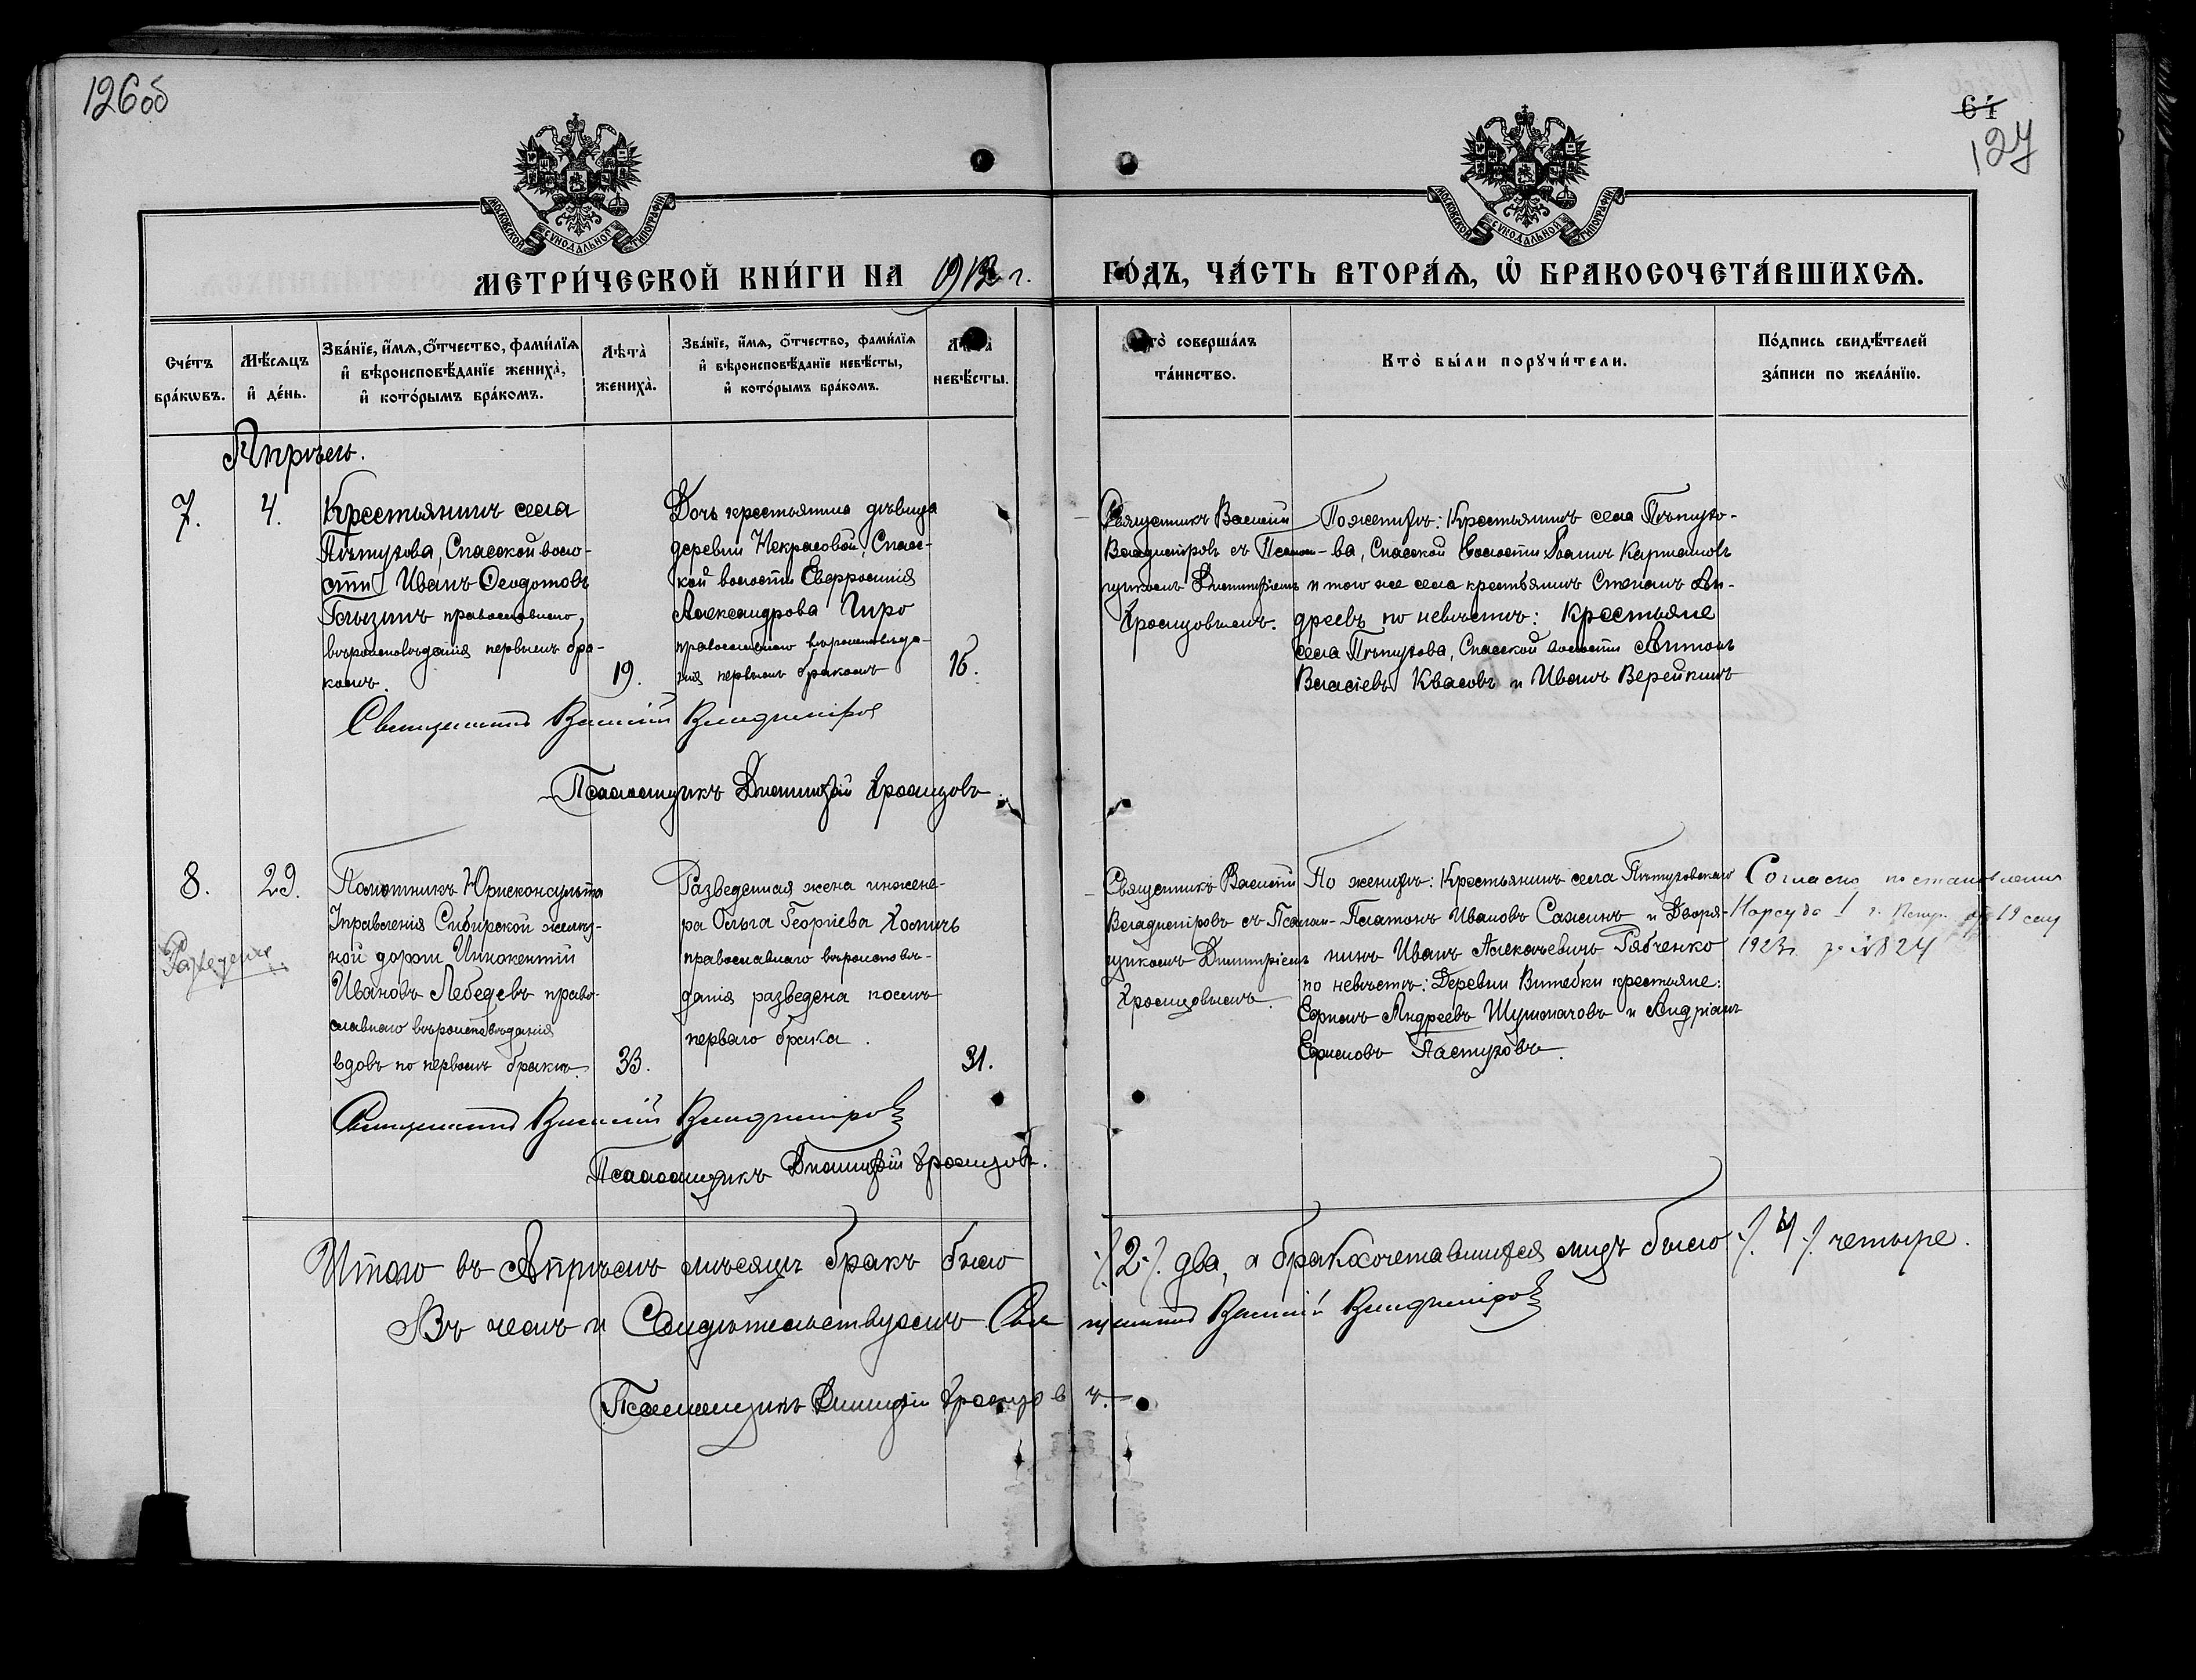 126об
64
127
МОСКОВСКОЙ СѴНОДАЛЬНОЙ ТИПОГРАФІИ
МОСКОВСКОЙ СѴНОДАЛЬНОЙ ТИПОГРАФІИ
МЕТРИ́ЧЕСКОЙ КНИ́ГИ НА 1913 г. ГО́ДЪ, ЧА́СТЬ ВТОРА́Ѧ, Ѡ҆ БРАКОСОЧЕТА́ВШИХСѦ.
Сче́тъ бра́кѡвъ.
Мѣ́сѧцъ и҆ де́нь.
Зва́нїе, и҆́мѧ, ѻ҆́тчество, фами́лїѧ и҆ вѣроисповѣ́данїе женихà, и҆ кото́рымъ бра́комъ.
Лѣтà женихà.
Зва́нїе, и҆́мѧ, ѻ҆́тчество, фами́лїѧ и҆ вѣроисповѣ́данїе невѣ́сты, и҆ кото́рымъ бра́комъ.
Лѣтà невѣ́сты.
Кто̀ соверша́лъ та́инство.
Кто̀ бы́ли порꙋчи́тели.
По́дпись свидѣ́телей за́писи по жела́нїю.
Апрѣль.
7.
4.
Крестьянинъ села
Пѣтухова, Спасской воло-
сти Иванъ Ѳеодотовъ
православнаго
вѣроисповѣданія первымъ бра-
комъ.
19.
Дочь крестьянина дѣвица
деревни Некрасовой, Спас-
кой волости Евфросинія
Александрова Гиро
православнаго вѣроисповѣда-
нія первымъ бракомъ
16.
Священникъ Василій
Владиміровъ съ Псалом-
щикомъ Димитріемъ
Хромцовымъ.
По женихѣ: Крестьянинъ села Пѣтухо-
ва, Спасской волости Карташовъ
и того же села крестьянинъ Степанъ Ан-
дреевъ по невѣстѣ: Крестьяне
села Пѣтухова, Спасской волости Антонъ
Власіевъ Квасовъ и Иванъ Верейкинъ
Священникъ Василій Владиміровъ
Псаломщикъ Димитрій Хромцовъ.
8.
29.
Разведены
Помощникъ Юрисконсульта
Управленія Сибирской желѣз-
ной дороги Иннокентій
Ивановъ Лебедевъ право-
славнаго вѣроисповѣданія
вдовъ по первомъ бракѣ.
33.
Разведенная жена инжене-
ра Ольга Георгіева
православнаго вѣроисповѣ-
данія разведена послѣ
перваго брака.
31.
Священникъ Василій
Владиміровъ съ Псалом-
щикомъ Димитріемъ
Хромцовымъ.
По женихѣ: Крестьянинъ села Пѣтуховскаго
Платонъ Ивановъ Сажинъ и Дворя-
нинъ Иванъ Алексѣевичъ Рябченко
по невѣстѣ: Деревни Витебки крестьяне:
Ефимъ Андреевъ Шушмачовъ и Андріанъ
Ефимовъ Пастуховъ.
Согласно постановления
Нарсуда 1 от 19
1923г. за № 824
Священникъ Василій Владиміровъ
Псаломщикъ Димитрій Хромцовъ.
Итого въ Апрѣлѣ мѣсяцѣ бракъ было ./.2./. два, а бракосочетавшихся лицъ было ./.4./. четыре.
Въ чемъ и Свидѣтельствуемъ Священникъ Василій Владиміровъ
Псаломщикъ Димитрій Хромцовъ.